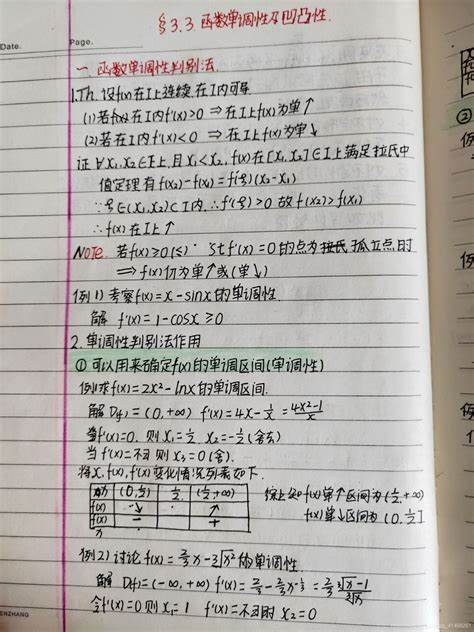 §3.3.函数单调性及凹凸性.
Date.
Page.
一 函数单调性判别法.
1.Th. 设f(x)在I上连续.在I内可导
(1)若f(x)在I内f'(x)>0 ⇒在I上f(x)为单↑
(2)若在I内f'(x)<0 ⇒ 在I上f(x)为单↓
证 ∀x₁,x₂∈I上,且x₁<x₂, f(x)在[x₁,x₂]∈I上满足拉氏中
值定理有f(x₂)-f(x₁)=f'(ξ)(x₂-x₁)
∵ξ∈(x₁,x₂)⊂I内.∴f'(ξ)>0 故f(x₂)>f(x₁)
∴f(x)在I上↑
NOTE. 若f'(x)≥0(≤) · Stf'(x)=0的点为 孤立点时
⇒f(x)仍为单↑或(单↓)
例1)考察f(x)=x-sinx的单调性
解 f'(x)=1-cosx≥0
2.单调性判别法作用
①可以用来确定f(x)的单调区间(单调性)
例1求f(x)=2x²-lnx的单调区间.
解 D(f)=(0,+∞) f'(x)=4x-1/x=4x²-1/x
当f'(x)=0. 则x₁=1/2, x₂=-1/2(舍去)
当f'(x)=不∃则x₃=0(舍).
将x,f(x),f'(x)变化情况列表如下.
(0,1/2) 1/2 (1/2,+∞)
f(x) ↓ · ↑
f'(x) - +
综上知f(x)单↑区间为(1/2,+∞)
f(x)单↓区间为(0,1/2]
例2)讨论f(x)=2/3x-∛x²的单调性
解 D(f)=(-∞,+∞) f'(x)=2/3-2/3x^-1/3=2/3 ∛x-1/∛x
令f'(x)=0则x₁=1 f'(x)=不∃时x₂=0
ENZHANG